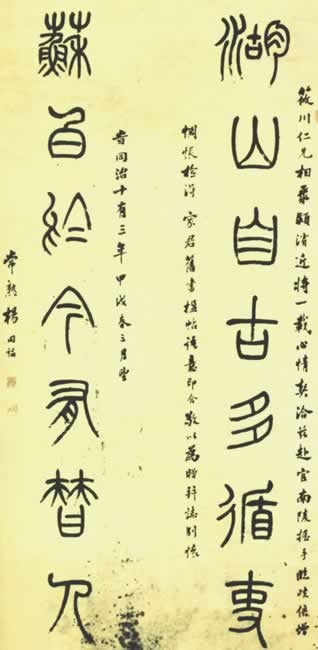 湖山自古多循吏
筱川仁兄相聚顧渚近將一載心情契洽茲赴官南陵握手臨歧倍增
惆悵檢得家君舊書楹帖語意印合敬以爲贈并誌別懷
蘇白於今有替人
時同治十有三年甲戌春三月望
常熟楊同福